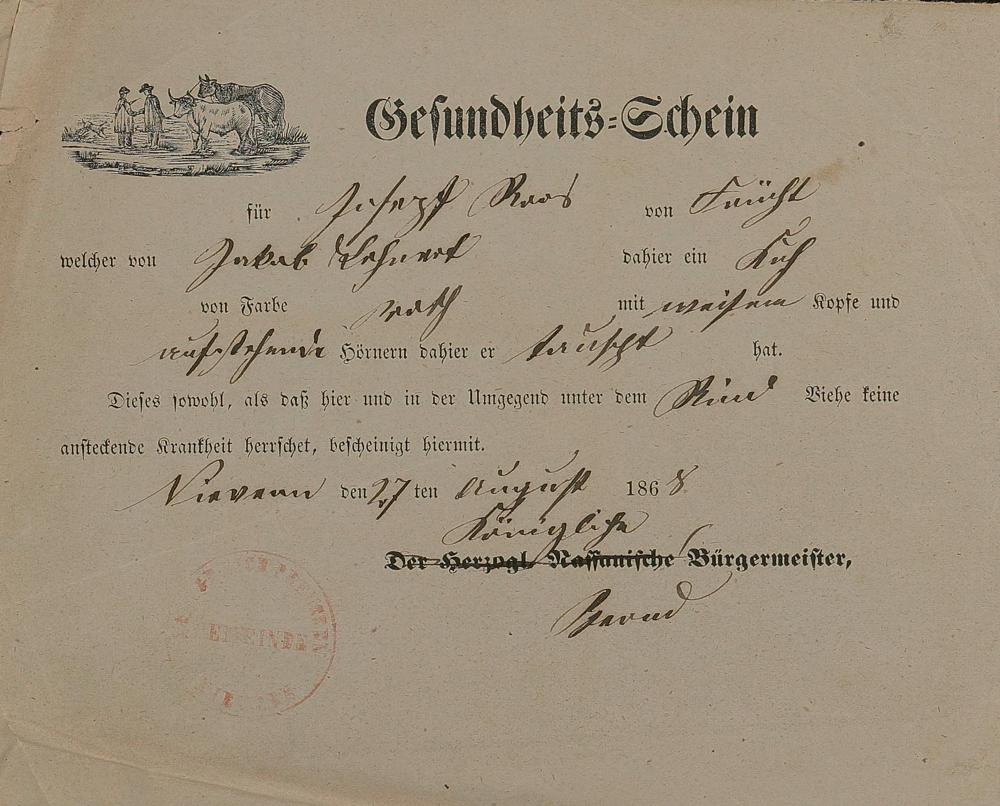 Gesundheits-Schein
für Joseph Roos von Frücht
welcher von Jakob Lehnert dahier ein Kuh
von Farbe roth mit weisem Kopfe und
aufstehende Hörnern dahier er tauscht hat.
Dieses sowohl, als daß hier und in der Umgegend unter dem Rind Viehe keine
ansteckende Krankheit herrschet, bescheinigt hiermit.
Nievern den 27 ten August 1868
Königliche
Der Herzogl. Nassauische Bürgermeister,
GEMEINDE